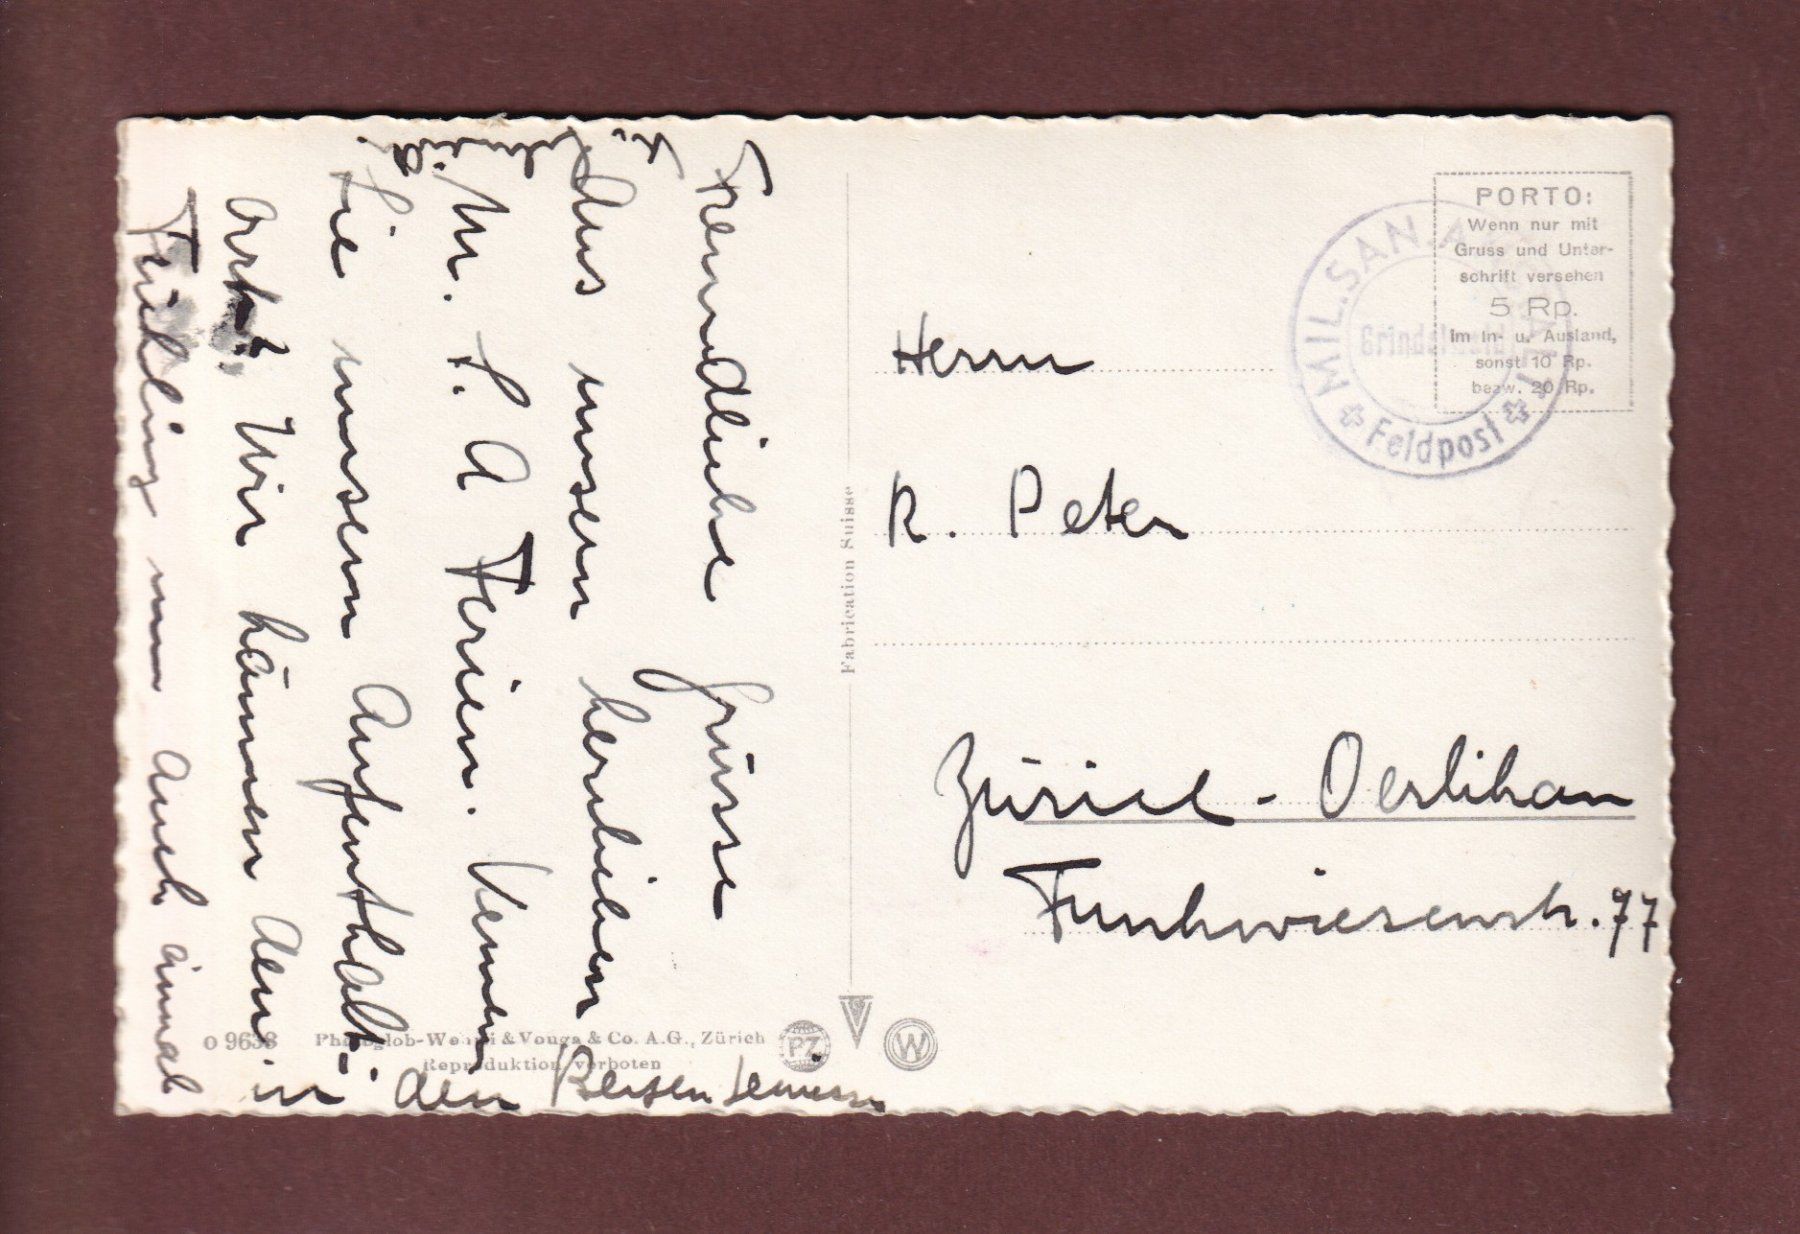 Freundliche Grüsse
Aus unsern herrlichen
M. S. A Ferien. Kennen
Sie unsern Aufenthalt-
ort? Wir können den
Frühling nun auch einmal
in den Bergen
Herrn
R. Peter
Zürich - Oerlikon
Funkwiesenstr. 77
PORTO:
Wenn nur mit
Gruss und Unter-
schrift versehen
5 Rp.
im In- u. Ausland,
sonst 10 Rp.
bezw. 20 Rp.
MIL.SAN.A
Grindelwald
Feldpost
Fabrication Suisse
O 9638 Photoglob-Wehrli & Vouga & Co. A.G., Zürich
Reproduktion verboten
PZ
V
W